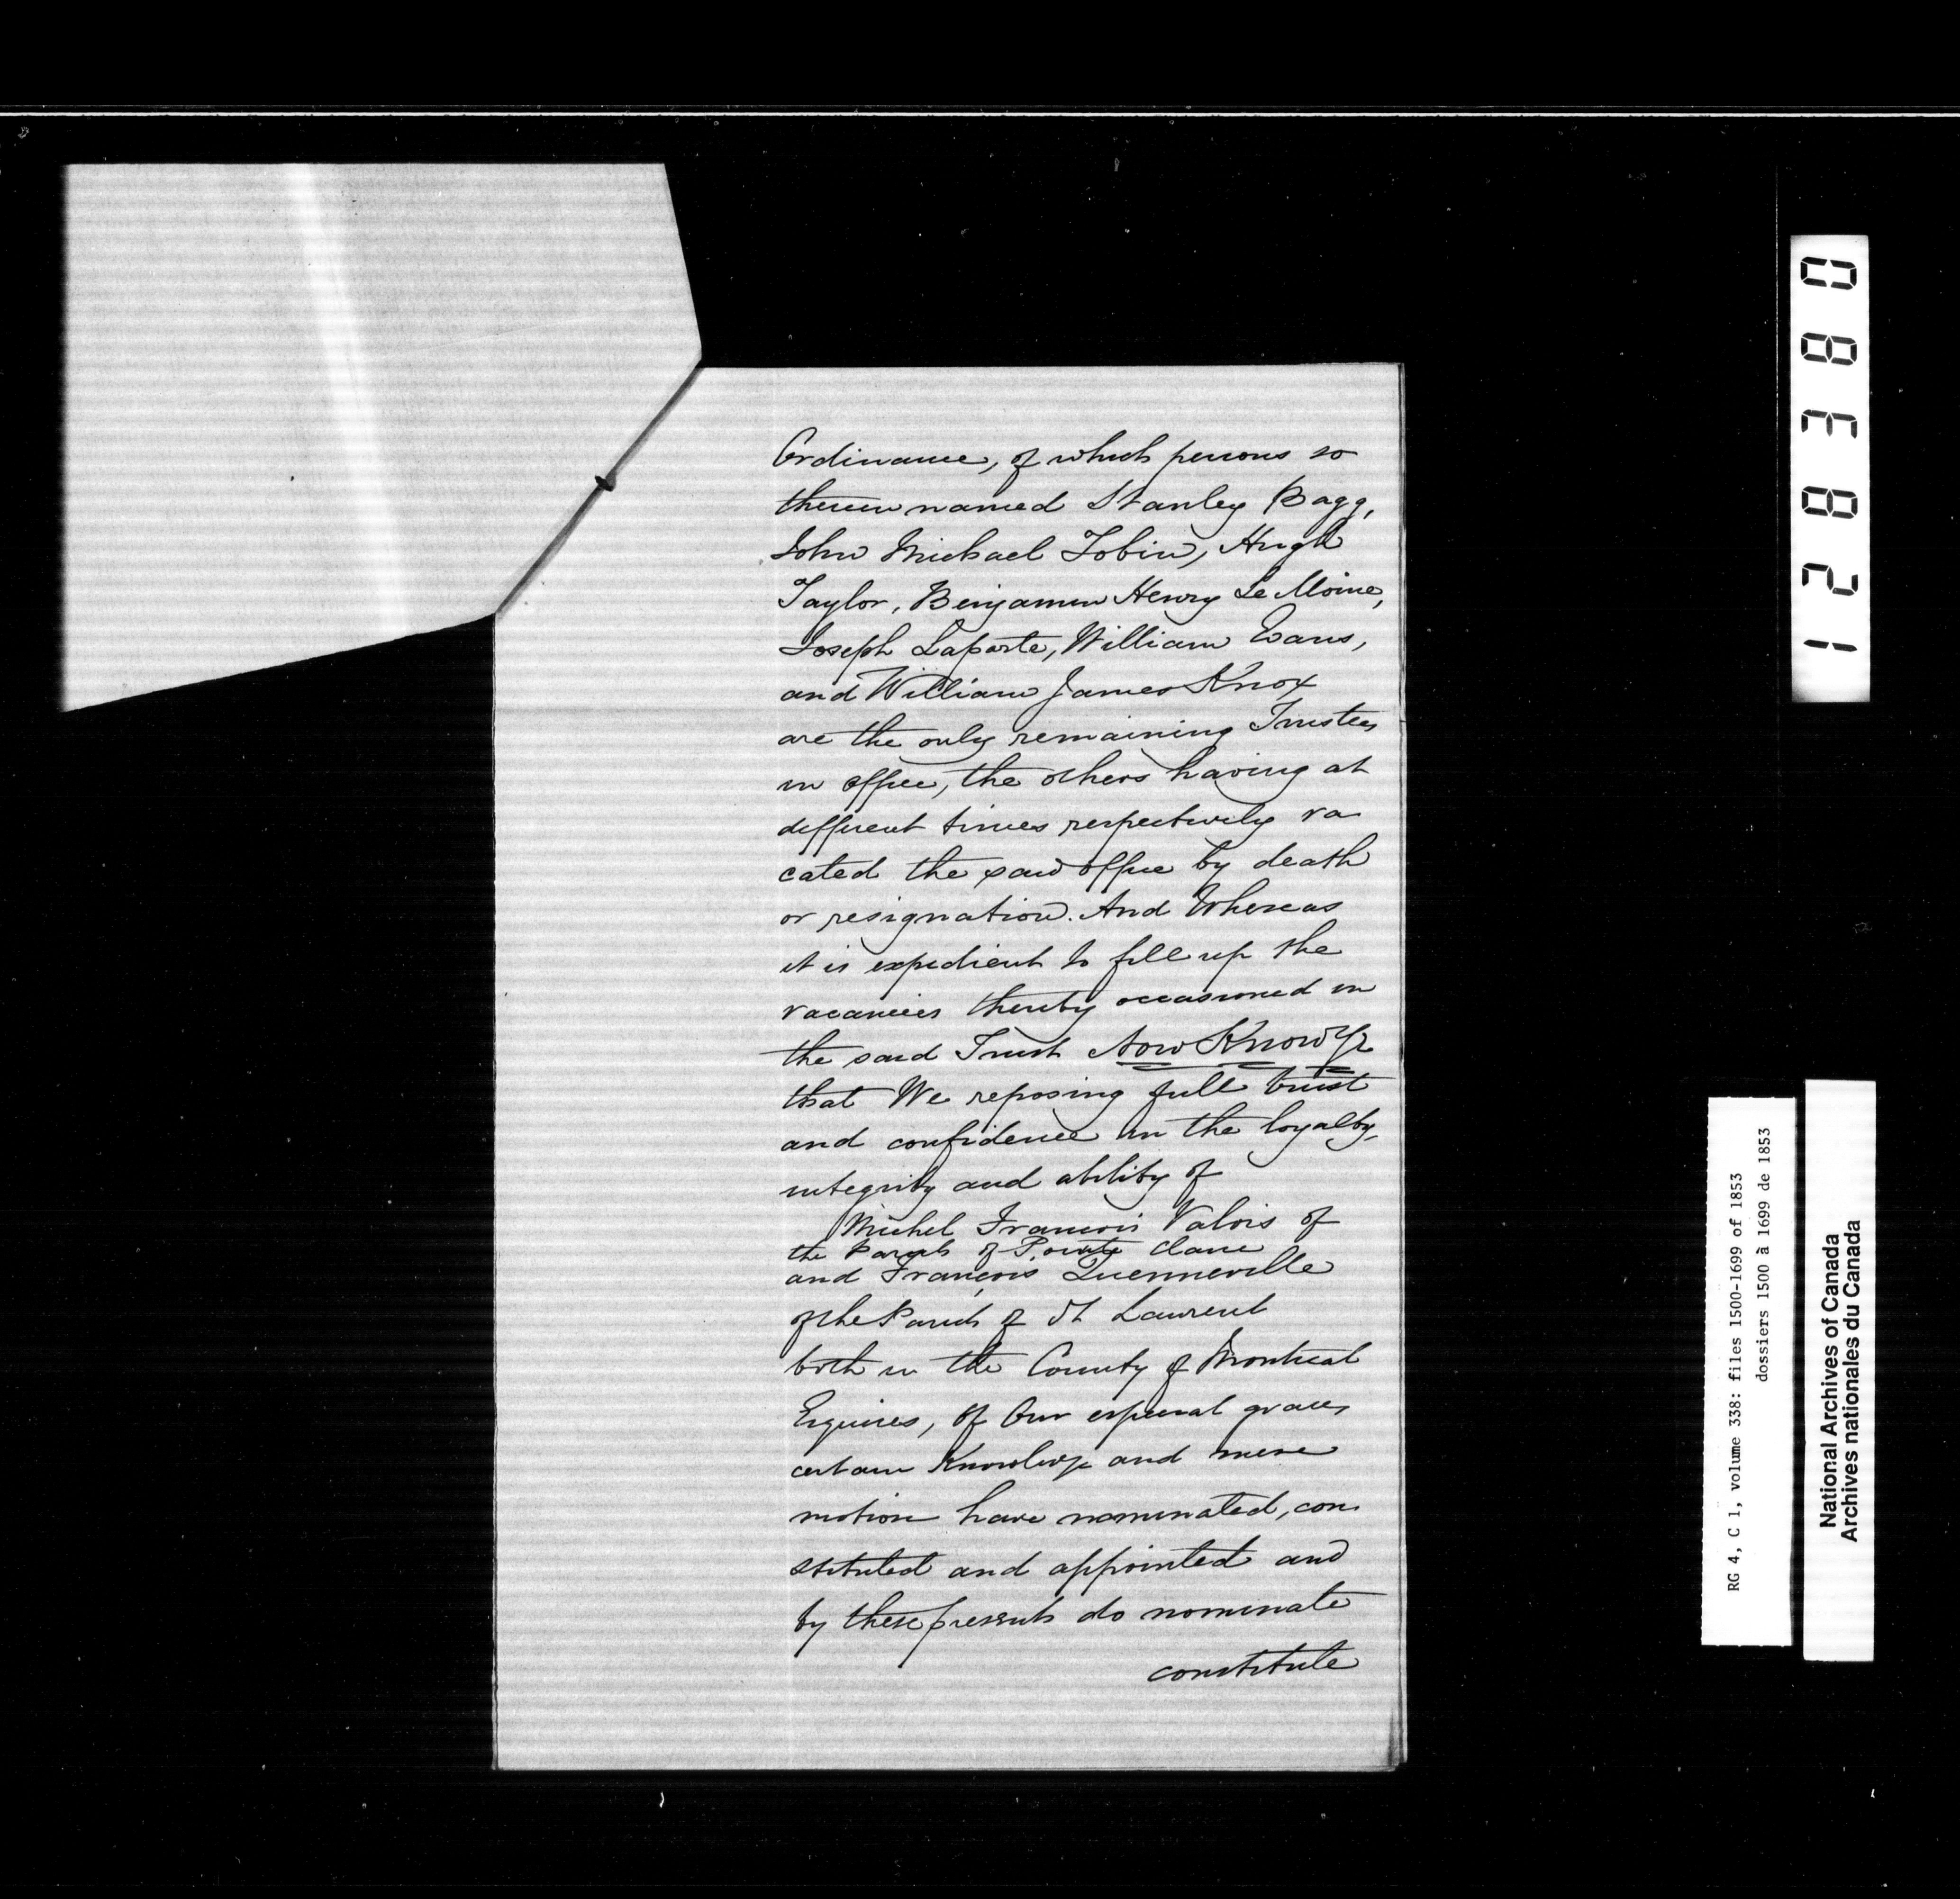 Ordinance, of which persons so
therein named Stanley Bagg,
John Michael Tobin, Hugh
Taylor, Benjamin Henry Le Moine,
Joseph Laporte, William Evans,
and William James Knox
are the only remaining Trustees
in office, the others having at
different times respectively va
cated the said office by death
or resignation. And Whereas
it is expedient to fill up the
vacancies thereby occasioned in
the said Trust Now Know Ye
that We reposing full trust
and confidence in the loyalty,
integrity and ability of
Michel Francois Valois of
the Parish of Pointe Claire
and François Quenneville
of the Parish of St Laurent
both in the County of Montreal
Esquires, of Our especial grace,
certain Knowledge and mere
motion have nominated, con
stituted and appointed and
by these presents do nominate
constitute
128380
RG 4, C 1, volume 338: files 1500-1699 of 1853
dossiers 1500 à 1699 de 1853
National Archives of Canada
Archives nationales du Canada